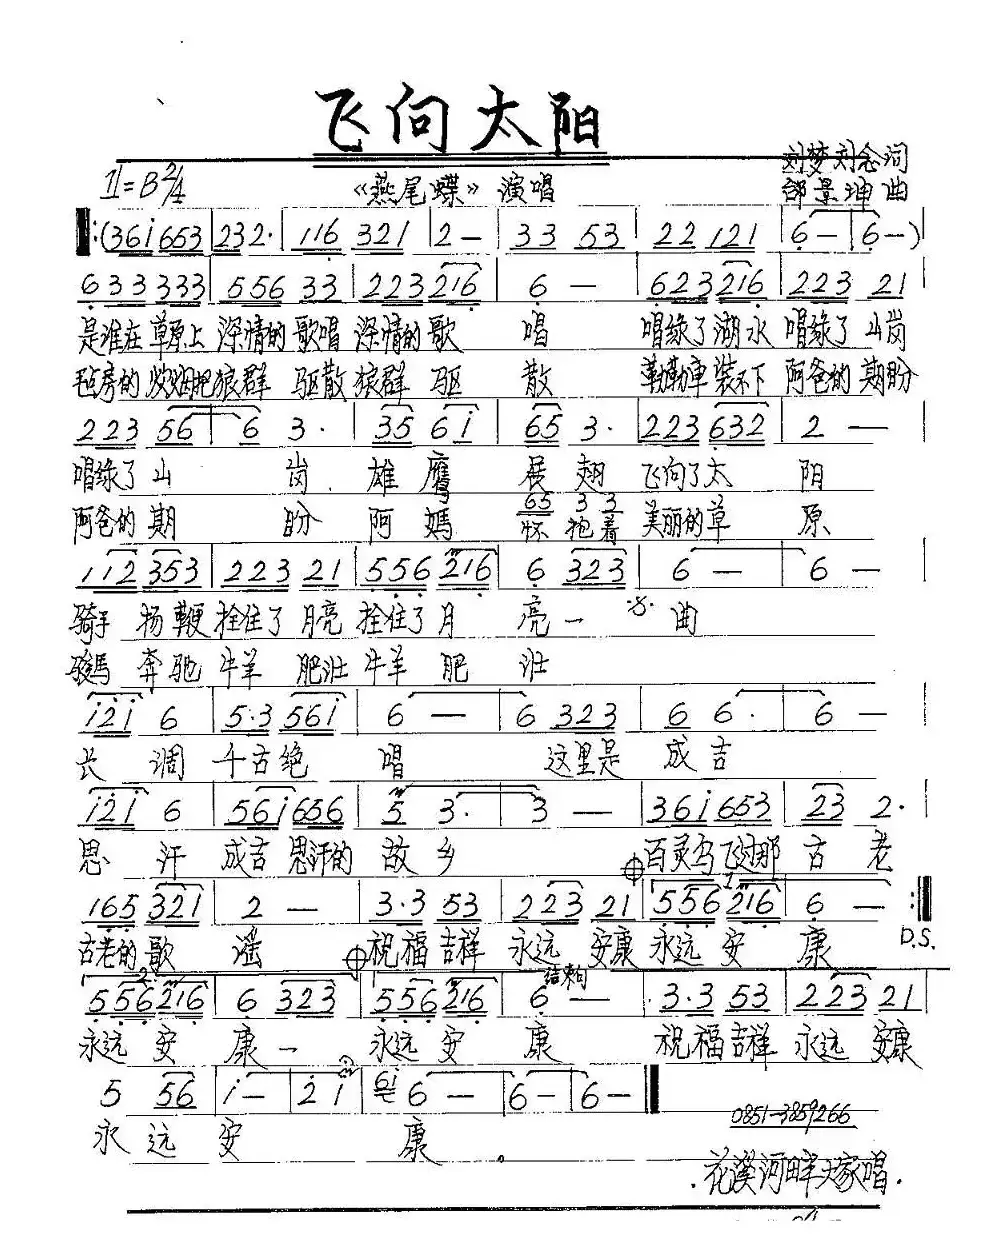 飞向太阳
刘梦 刘念 词
1=B 2/4 《燕尾蝶》演唱 邰景坤 曲
‖:(36i 653 | 232· | 116 321 | 2 — | 33 53 | 22 121 | 6 — | 6 —) |
633 333 | 556 33 | 223 216 | 6 — | 623 216 | 223 21 |
是谁在草原上 深情的歌唱 深情的歌 唱 唱绿了湖水 唱绿了山岗
毡房的 把狼群 驱散 狼群 驱 散 勒勒车装不下 阿爸的期盼
223 56 | 6 3· | 35 6i | 65 3· | 223 632 | 2 — |
唱绿了山 岗 雄鹰 展翅 飞向了太 阳
65 3 3
阿爸的期 盼 阿妈 怀抱着 美丽的草 原
112 353 | 223 21 | 556 216 | 6 323 | 6 — | 6 — |
骑手 扬鞭 拴住了月亮 拴住了月 亮 一 曲
骏馬 奔驰 牛羊 肥壮 牛羊 肥 壮
i2i 6 | 5·3 56i | 6 — | 6 323 | 6 6· | 6 — |
长 调 千古绝 唱 这里是 成吉
i2i 6 | 56i 656 | 5 3· | 3 — | 36i 653 | 23 2· |
思 汗 成吉思汗的 故 乡 百灵鸟飞过那 古 老
165 321 | 2 — | 3·3 53 | 223 21 | 1 556 216 | 6 — :‖
古老的歌 谣 祝福吉祥 永远 安康 永远 安 康 D.S.
2 结束句
556 216 | 6 323 | 556 216 | 6 — | 3·3 53 | 223 21 |
永远 安 康 一 永远 安 康 祝福吉祥 永远 安康
5 56 | i — | 2 i | 6i 6 — | 6 — | 6 — ‖
永 远 安 康
0851-3859266
花溪河畔大家唱.